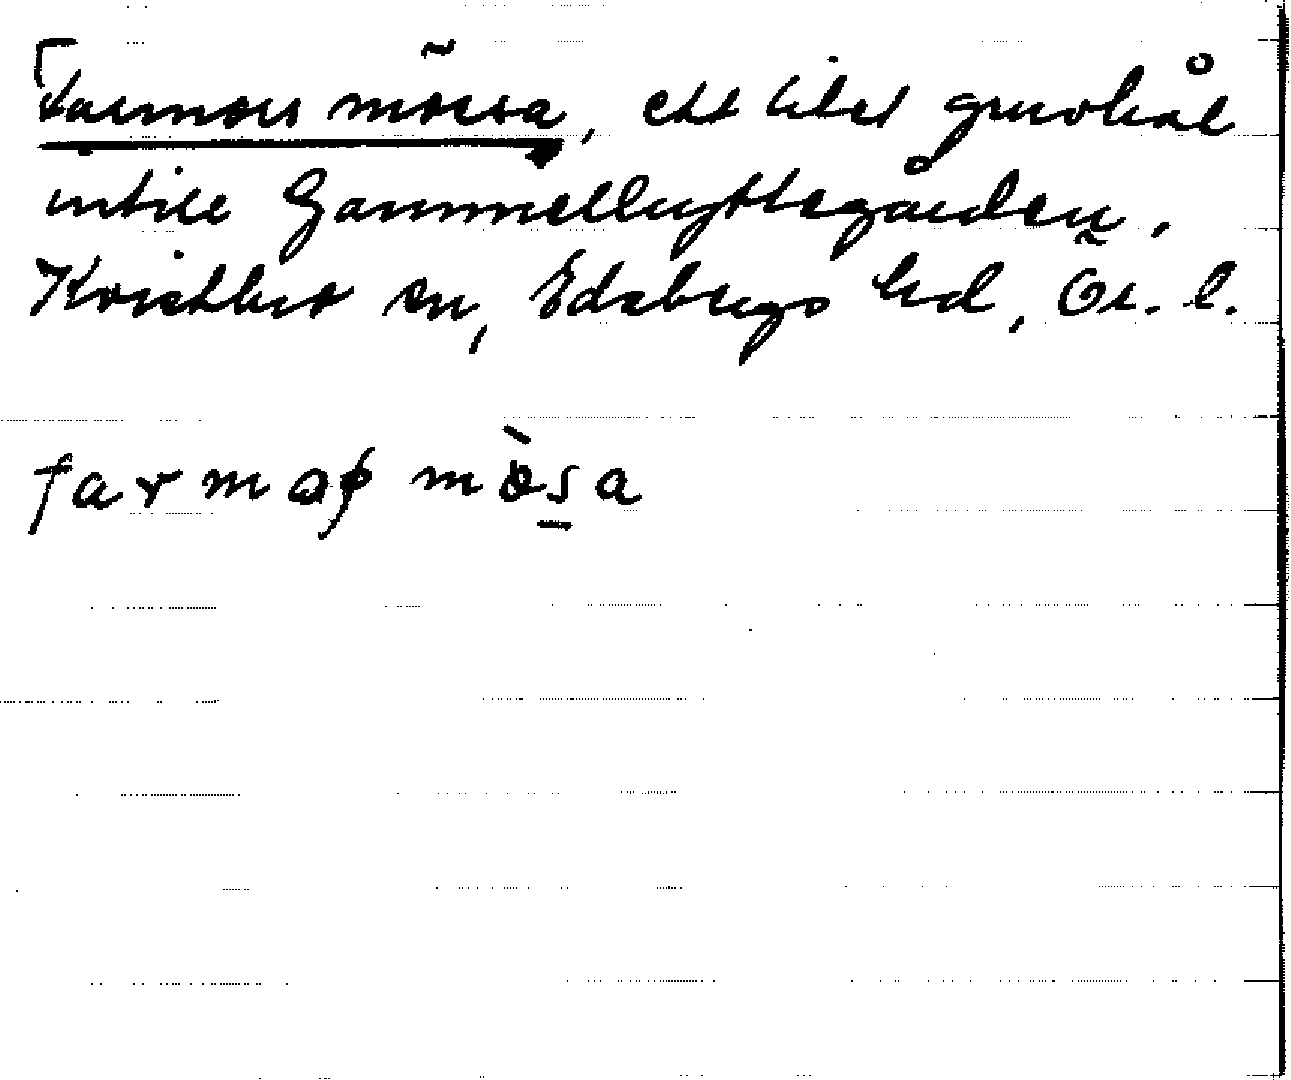 Farmors mössa, ett litet gruvhål
intill Gammelhyttegården,
Kvistbro sn, Edsbergs hd, Ör. l.
farmoʂ mòsa